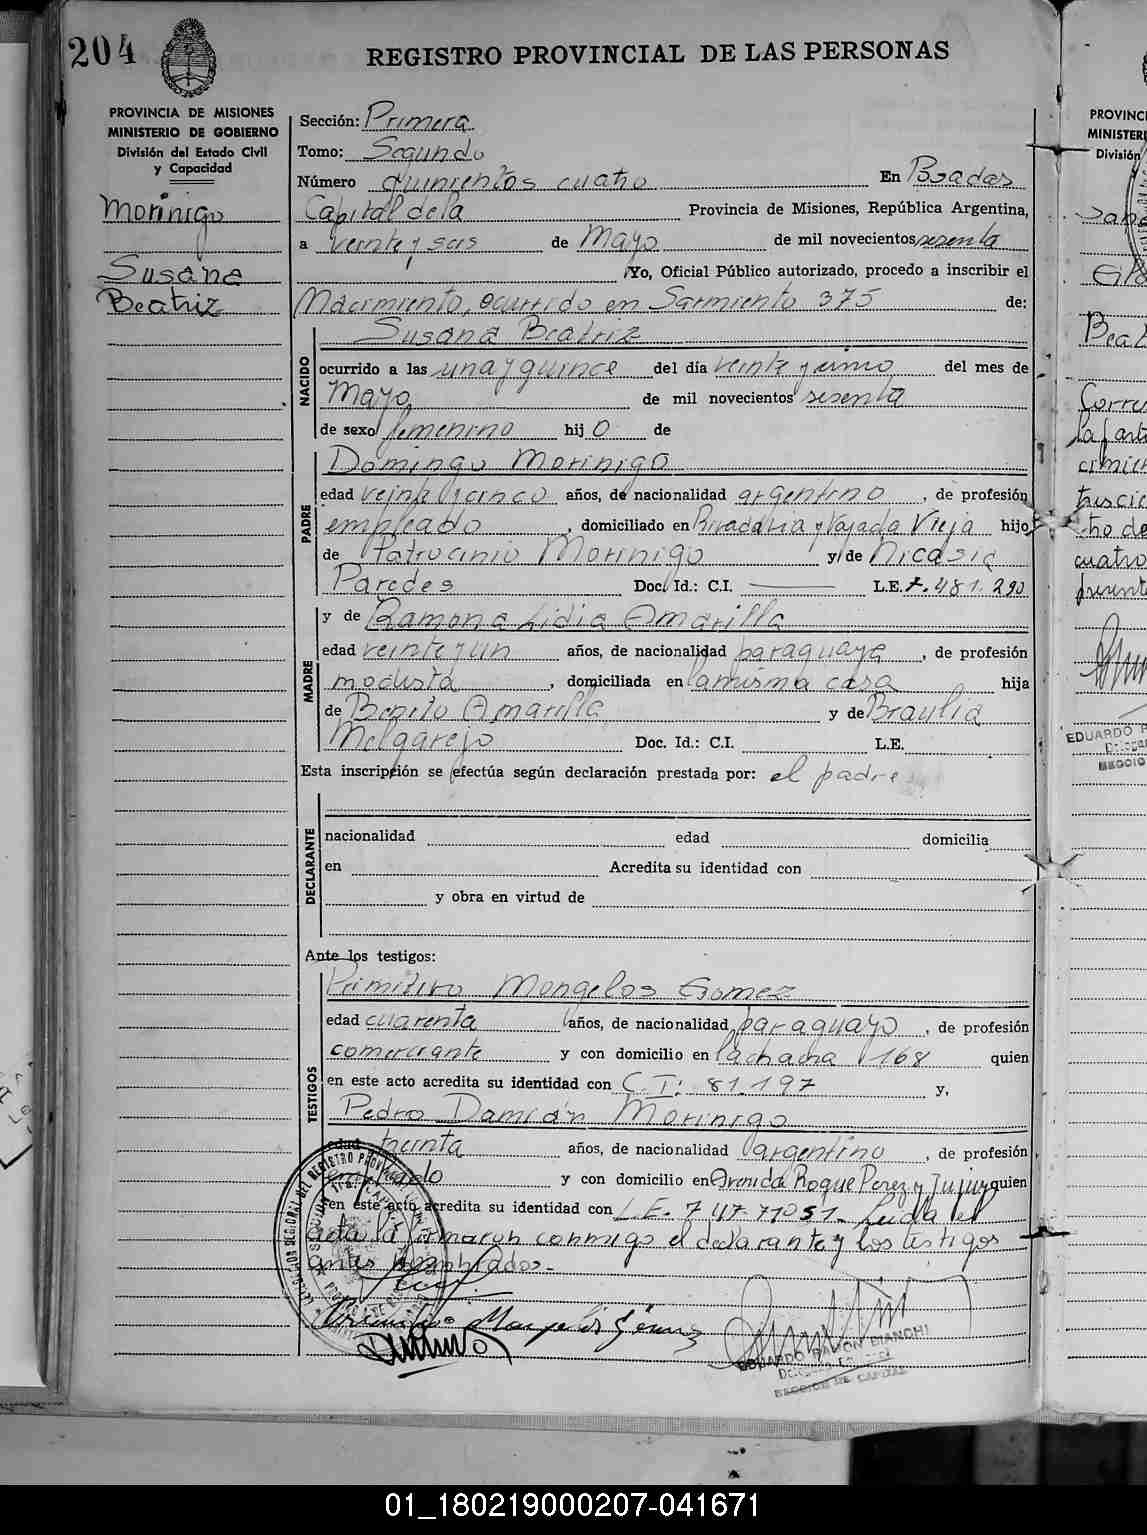 204
REGISTRO PROVINCIAL DE LAS PERSONAS
PROVINCIA DE MISIONES
MINISTERIO DE GOBIERNO
División del Estado Civil
y Capacidad
Morinigo
Susana
Beatriz
Sección: Primera
Tomo: Segundo
Número quinientos cuatro En Posadas
Capital de la Provincia de Misiones, República Argentina,
a veinte y seis de Mayo de mil novecientos sesenta
Yo, Oficial Público autorizado, procedo a inscribir el
Nacimiento, ocurrido en Sarmiento 375 de:
NACIDO
Susana Beatriz
ocurrido a las una y quince del día veinte y uno del mes de
Mayo de mil novecientos sesenta
de sexo femenino hij o de
PADRE
Domingo Morinigo
edad veinte y cinco años, de nacionalidad argentino, de profesión
empleado, domiciliado en Rivadavia y Vajada Vieja hijo
de Patrocinio Morinigo y de Nicasia
Paredes Doc. Id.: C.I. L.E. 7.481.290
MADRE
y de Ramona Lidia Amarilla
edad veinte y un años, de nacionalidad paraguaya, de profesión
modista, domiciliada en la misma casa hija
de Benito Amarilla y de Braulia
Melgarejo Doc. Id.: C.I. L.E.
Esta inscripción se efectúa según declaración prestada por: el padre
DECLARANTE
nacionalidad edad domicilia
en Acredita su identidad con
y obra en virtud de
Ante los testigos:
TESTIGOS
Primitivo Mongelos Gomez
edad cuarenta años, de nacionalidad paraguayo, de profesión
comerciante y con domicilio en Lachana 168 quien
en este acto acredita su identidad con C.I: 81.197 y,
Pedro Damián Morinigo
edad treinta años, de nacionalidad argentino, de profesión
y con domicilio en Avenida Roque Perez y Jujuy quien
en este acto acredita su identidad con L.E. 7 47.77051. Leida el
acta la firmaron conmigo el declarante y los testigos
antes nombrados.-
EDUARDO RAMON BIANCHI
SECCION DE CAPITAL
PROVINC
MINISTERI
División
Beat
EDUARDO R
01_180219000207-041671